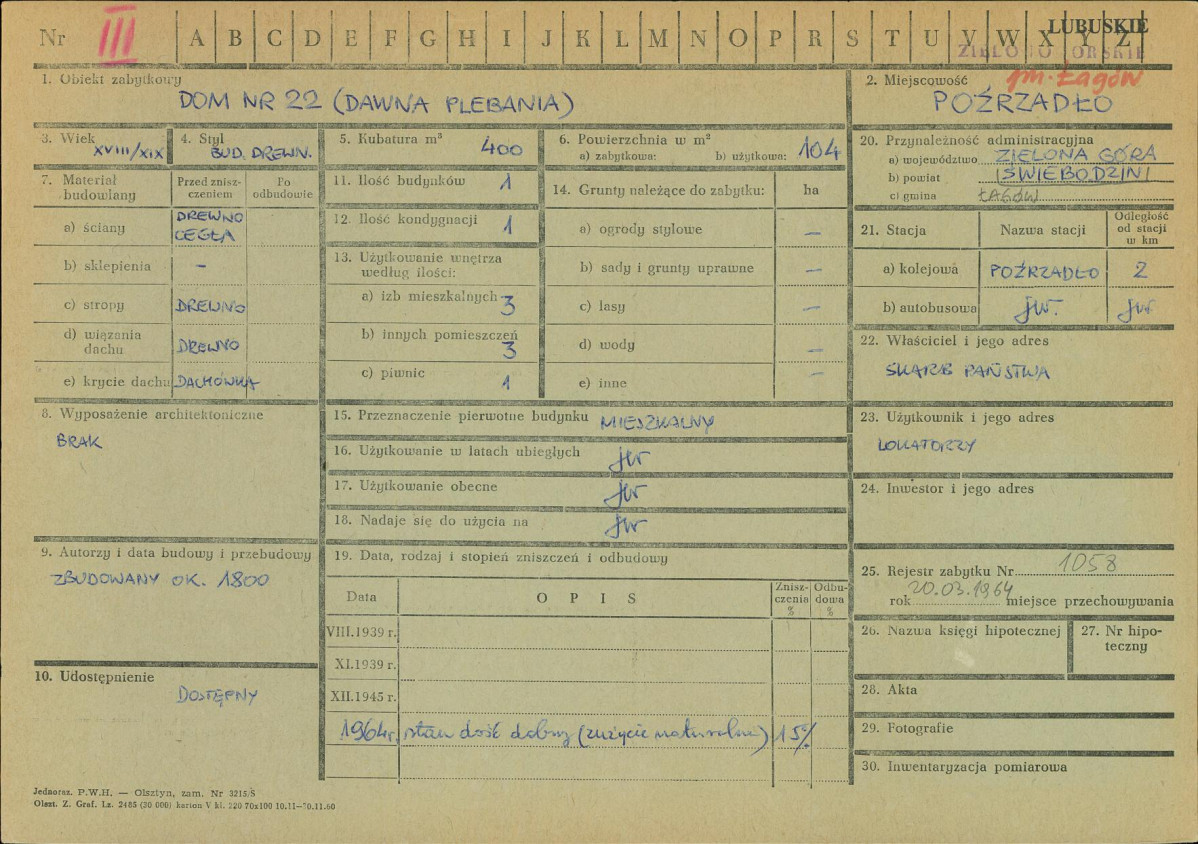 Nr III A B C D E F G H I J K L M N O P R S T U V W X Y Z
LUBUSKIE
ZIELONOGÓRSKIE
gm. Łagów
1. Obiekt zabytkowy
DOM NR 22 (DAWNA PLEBANIA)
2. Miejscowość
POŹRZADŁO
3. Wiek
XVIII/XIX
4. Styl
BUD. DREWN.
5. Kubatura m³
400
6. Powierzchnia w m²
a) zabytkowa: b) użytkowa: 104
7. Materiał budowlany
Przed zniszczeniem
Po odbudowie
a) ściany DREWNO CEGŁA
b) sklepienia –
c) stropy DREWNO
d) wiązania dachu DREWNO
e) krycie dachu DACHÓWKA
8. Wyposażenie architektoniczne
BRAK
9. Autorzy i data budowy i przebudowy
ZBUDOWANY OK. 1800
10. Udostępnienie
DOSTĘPNY
11. Ilość budynków 1
12. Ilość kondygnacji 1
13. Użytkowanie wnętrza
według ilości:
a) izb mieszkalnych 3
b) innych pomieszczeń 3
c) piwnic 1
14. Grunty należące do zabytku: ha
a) ogrody stylowe –
b) sady i grunty uprawne –
c) lasy –
d) wody –
e) inne –
15. Przeznaczenie pierwotne budynku MIESZKALNY
16. Użytkowanie w latach ubiegłych jw
17. Użytkowanie obecne jw
18. Nadaje się do użycia na jw
19. Data, rodzaj i stopień zniszczeń i odbudowy
Data OPIS Zniszczenia % Odbudowa %
VIII.1939 r.
XI.1939 r.
XII.1945 r.
1964r. stan dość dobry (zużycie naturalne) 15%
20. Przynależność administracyjna
a) województwo ZIELONA GÓRA
b) powiat ŚWIEBODZIN
c) gmina ŁAGÓW
21. Stacja Nazwa stacji Odległość od stacji w km
a) kolejowa POŹRZADŁO 2
b) autobusowa jw. jw
22. Właściciel i jego adres
SKARB PAŃSTWA
23. Użytkownik i jego adres
LOKATORZY
24. Inwestor i jego adres
25. Rejestr zabytku Nr 1058
rok 20.03.1964 miejsce przechowywania
26. Nazwa księgi hipotecznej
27. Nr hipoteczny
28. Akta
29. Fotografie
30. Inwentaryzacja pomiarowa
Jednoraz. P.W.H. — Olsztyn, zam. Nr 3215/S
Olszt. Z. Graf. Lz. 2485 (30 000) karton V kl. 220 70x100 10.11—30.11.60